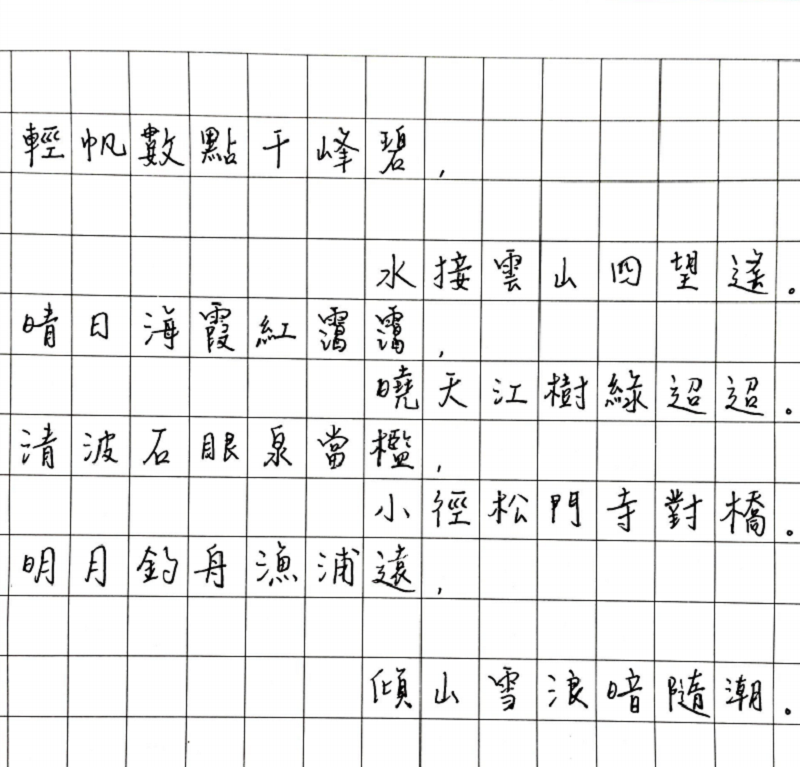 輕帆數點千峰碧，
水接雲山四望遙。
晴日海霞紅靄靄，
曉天江樹綠迢迢。
清波石眼泉當檻，
小徑松門寺對橋。
明月釣舟漁浦遠，
傾山雪浪暗隨潮。